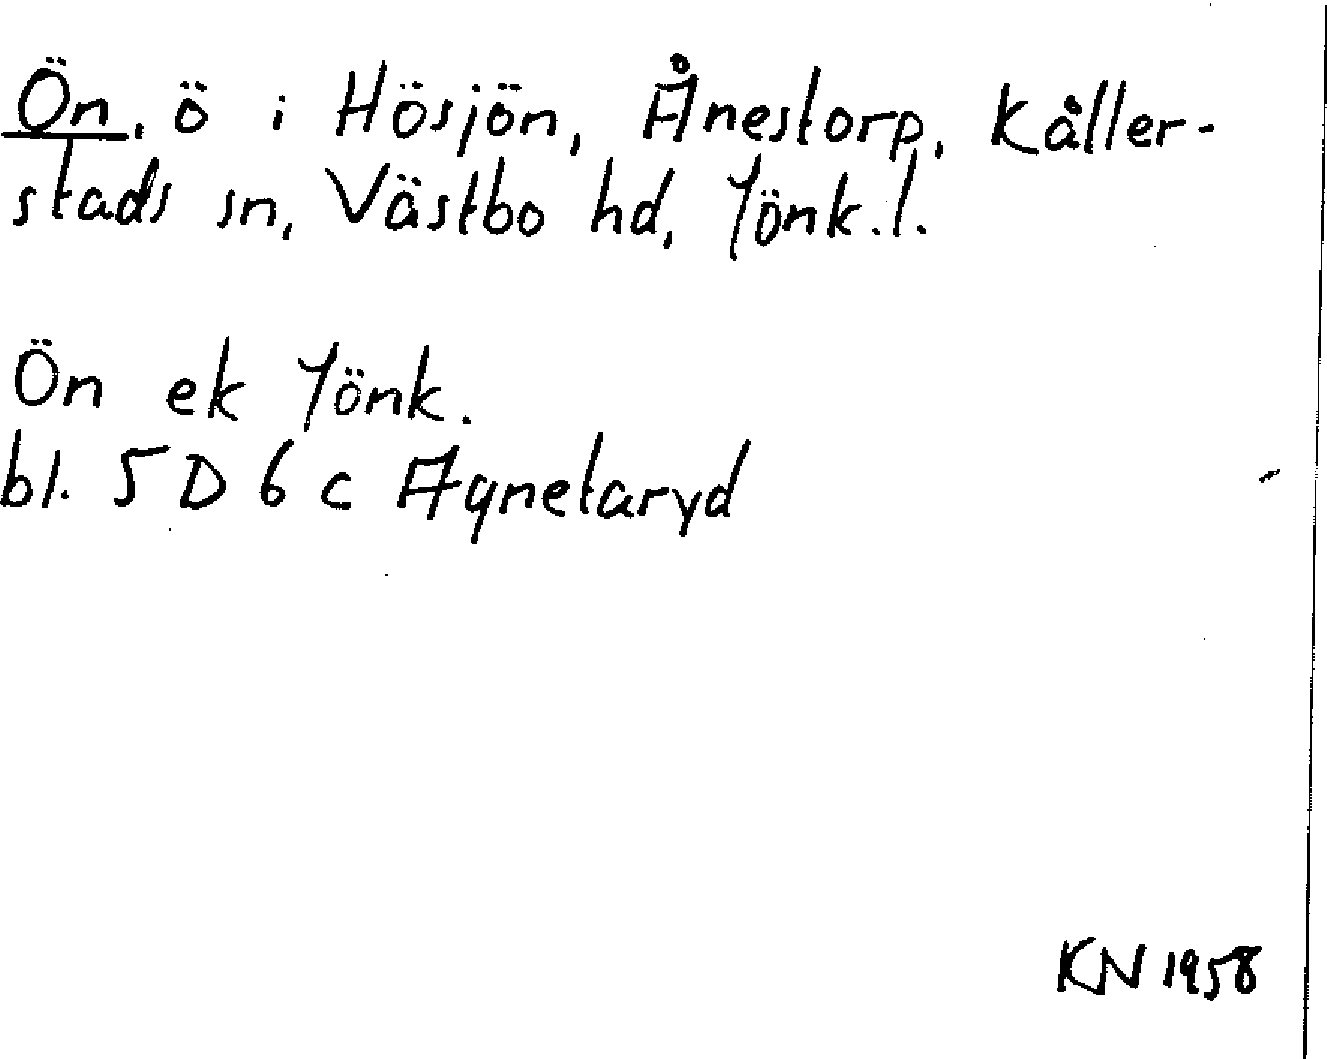 Ön, ö i Hösjön, Ånestorp, Kåller-
stads sn, Västbo hd, Jönk.l.
Ön ek Jönk.
bl. 5 D 6 c Agnetaryd
KN 1958